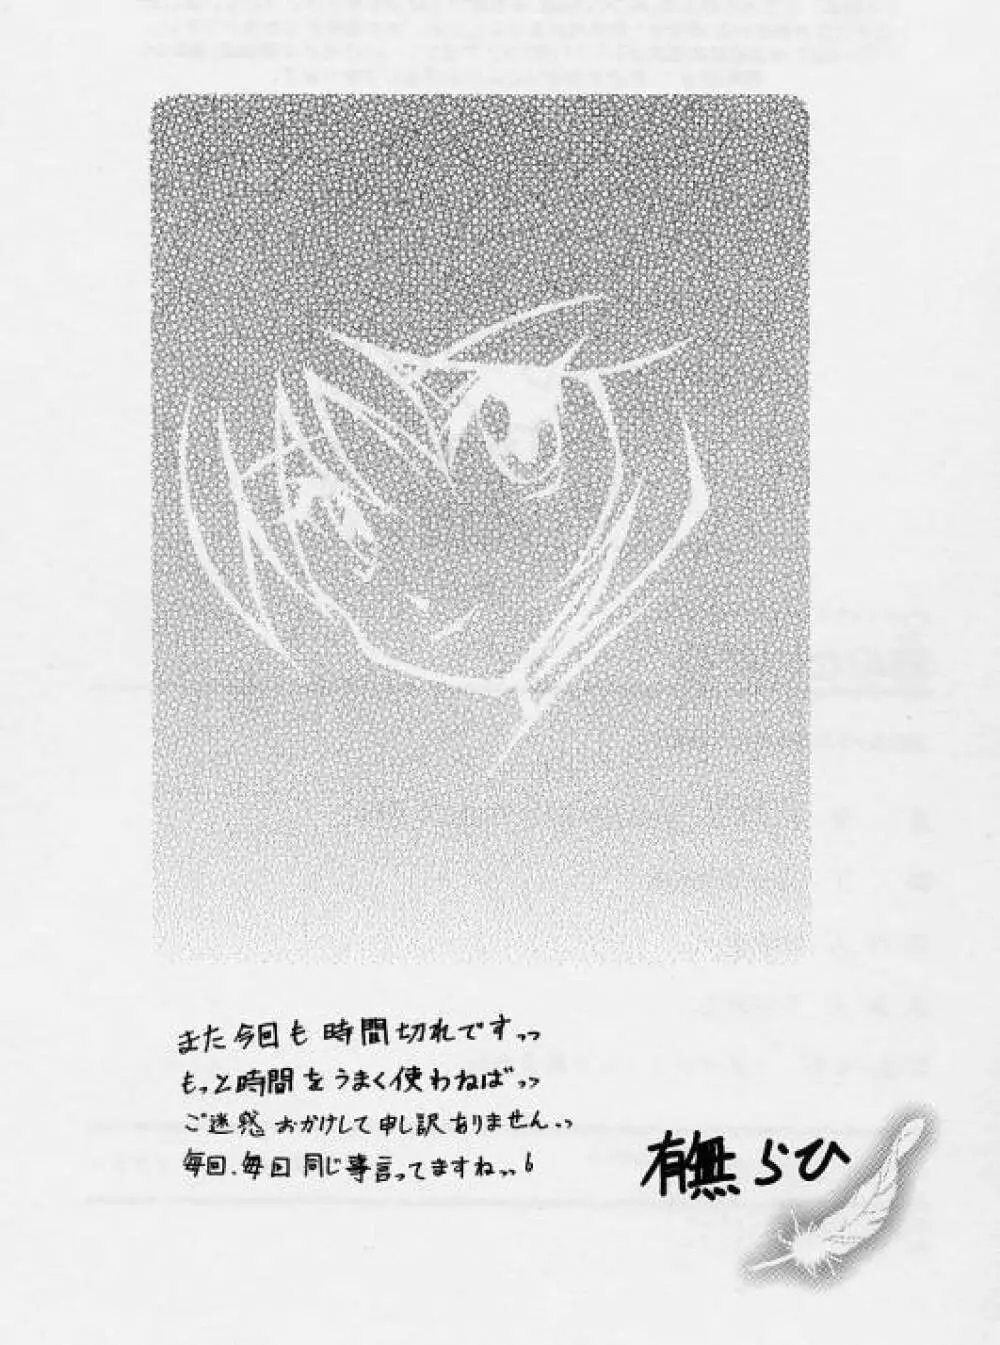 また今回も時間切れですっっ
もっと時間をうまく使わねばっっ
ご迷惑おかけして申し訳ありません、、
毎回、毎回同じ事言ってますねっっ６
有無らひ